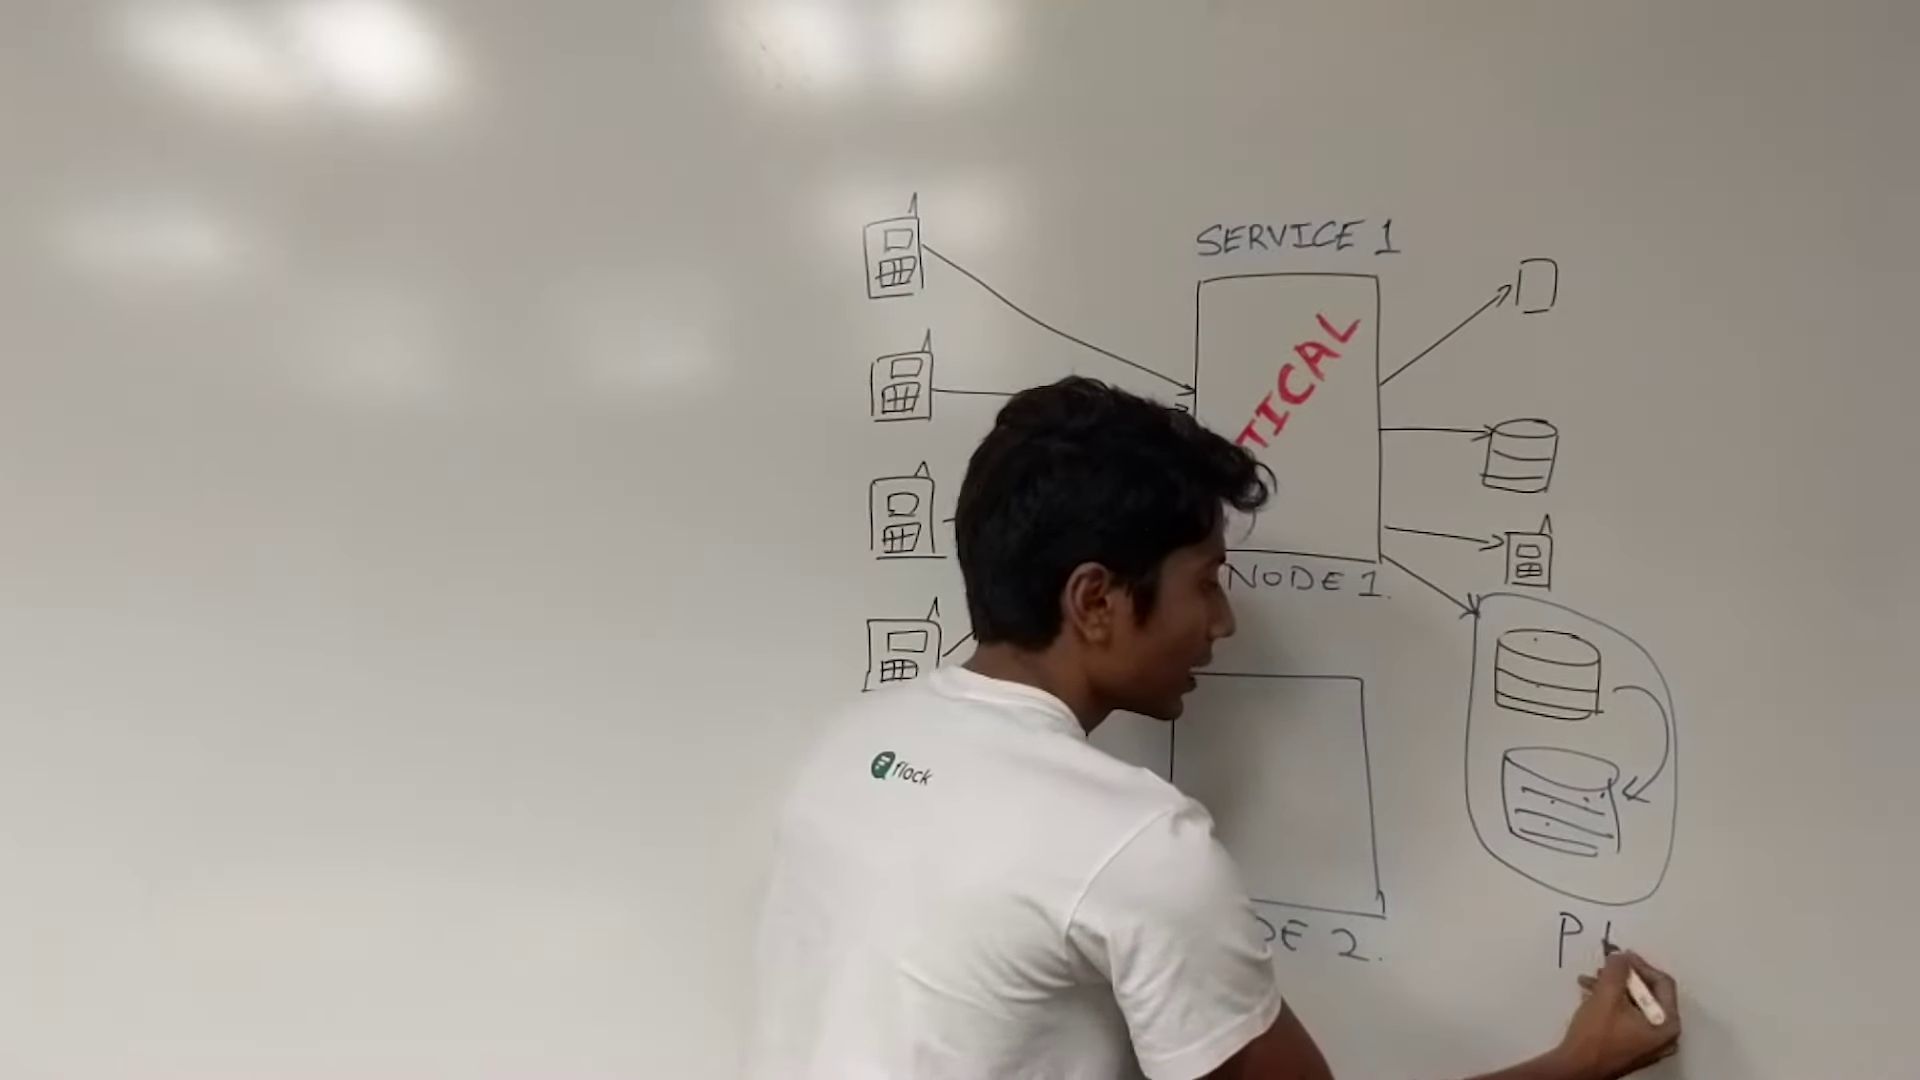 SERVICE 1
TICAL
NODE 1.
DE 2.
flock
P